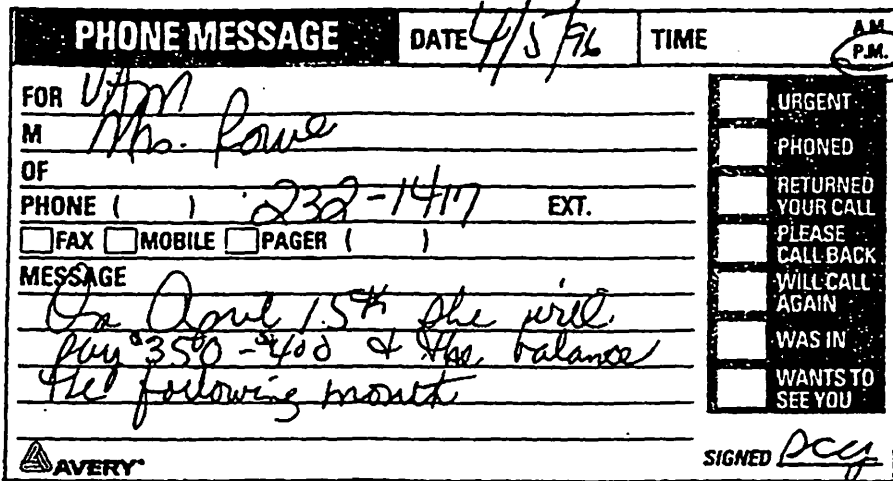 PHONE MESSAGE DATE 4/5/96 TIME A.M. P.M.
FOR VAM
M Ms. Rowe
OF
PHONE ( ) 232-1417 EXT.
FAX MOBILE PAGER ( )
MESSAGE
On April 15th she will
pay $350-$400 & the balance
the following month
URGENT
PHONED
RETURNED
YOUR CALL
PLEASE
CALL BACK
WILL CALL
AGAIN
WAS IN
WANTS TO
SEE YOU
AVERY
SIGNED